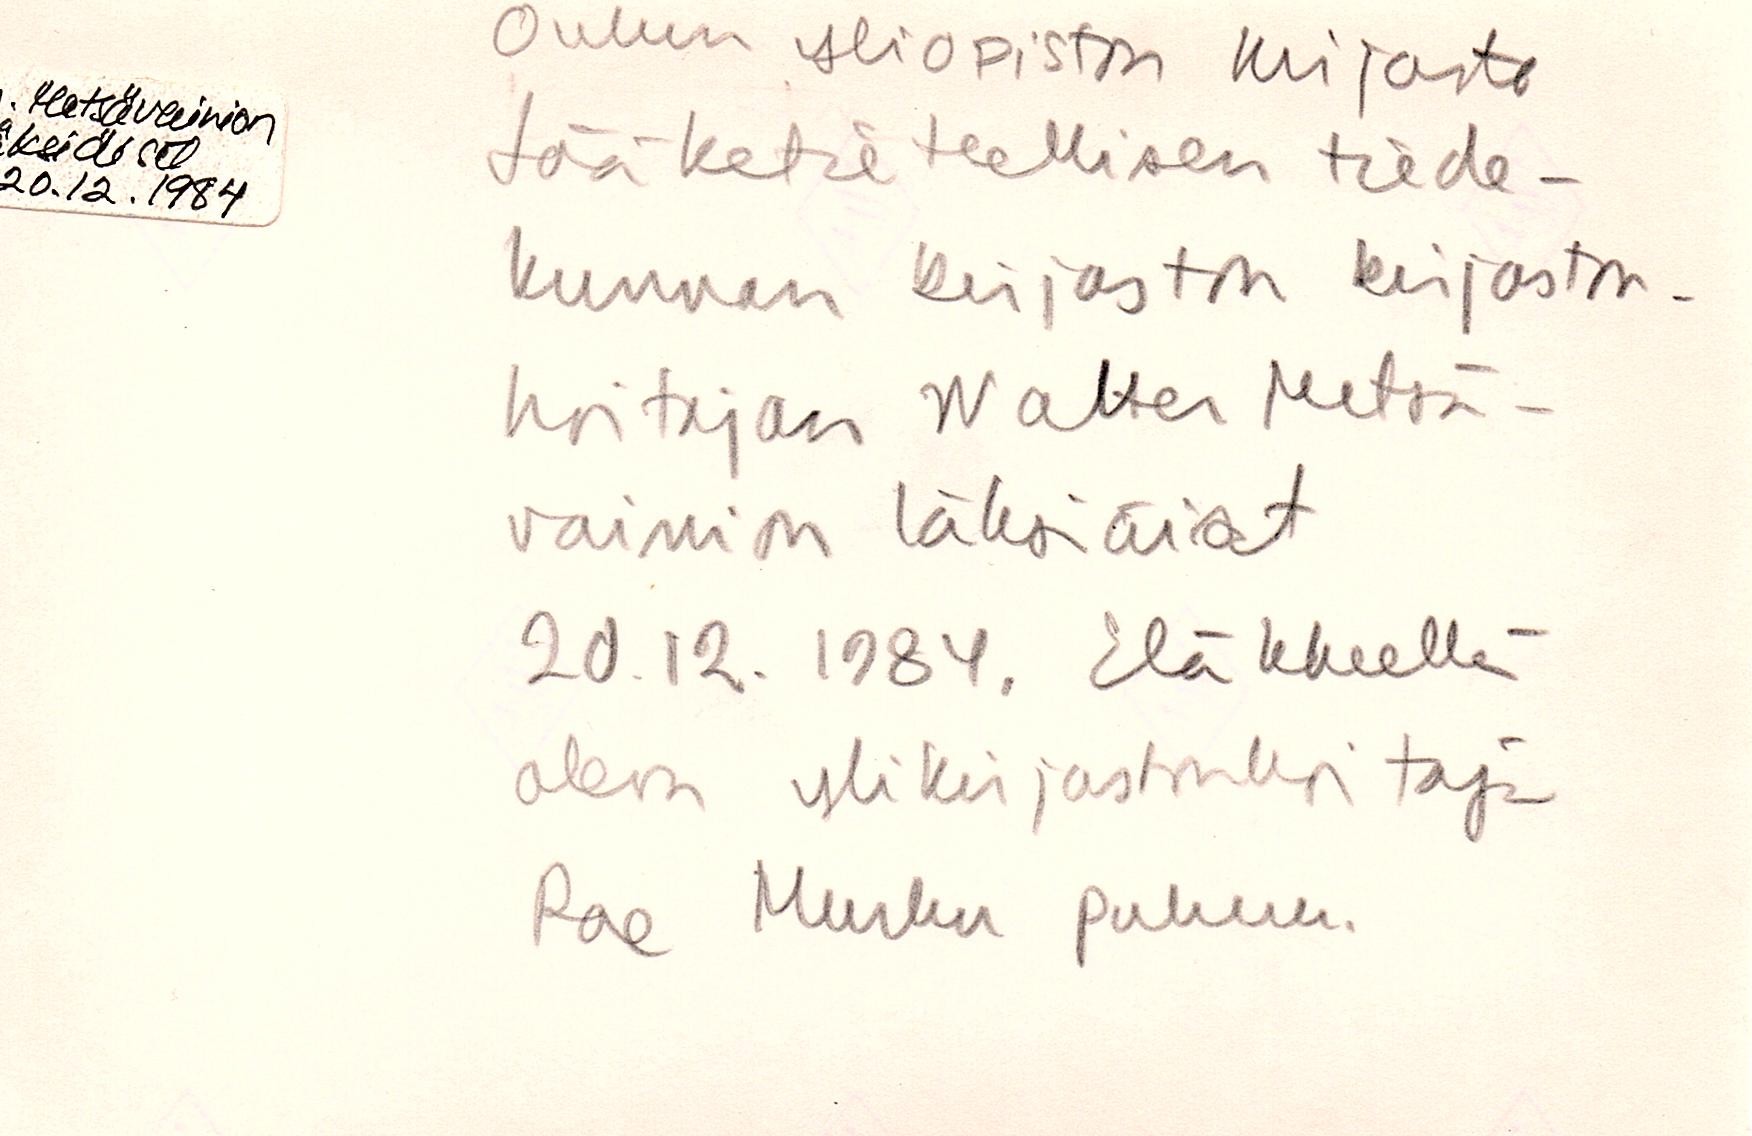 Oulun yliopiston kirjasto
Lääketieteellisen tiede-
kunnan kirjaston kirjaston-
hoitajan Walter Metsä-
vainion läksiäiset
20.12. 1984. Eläkkeellä
oleva ylikirjastonhoitaja
puhuu.
Metsävainion
20.12.1984